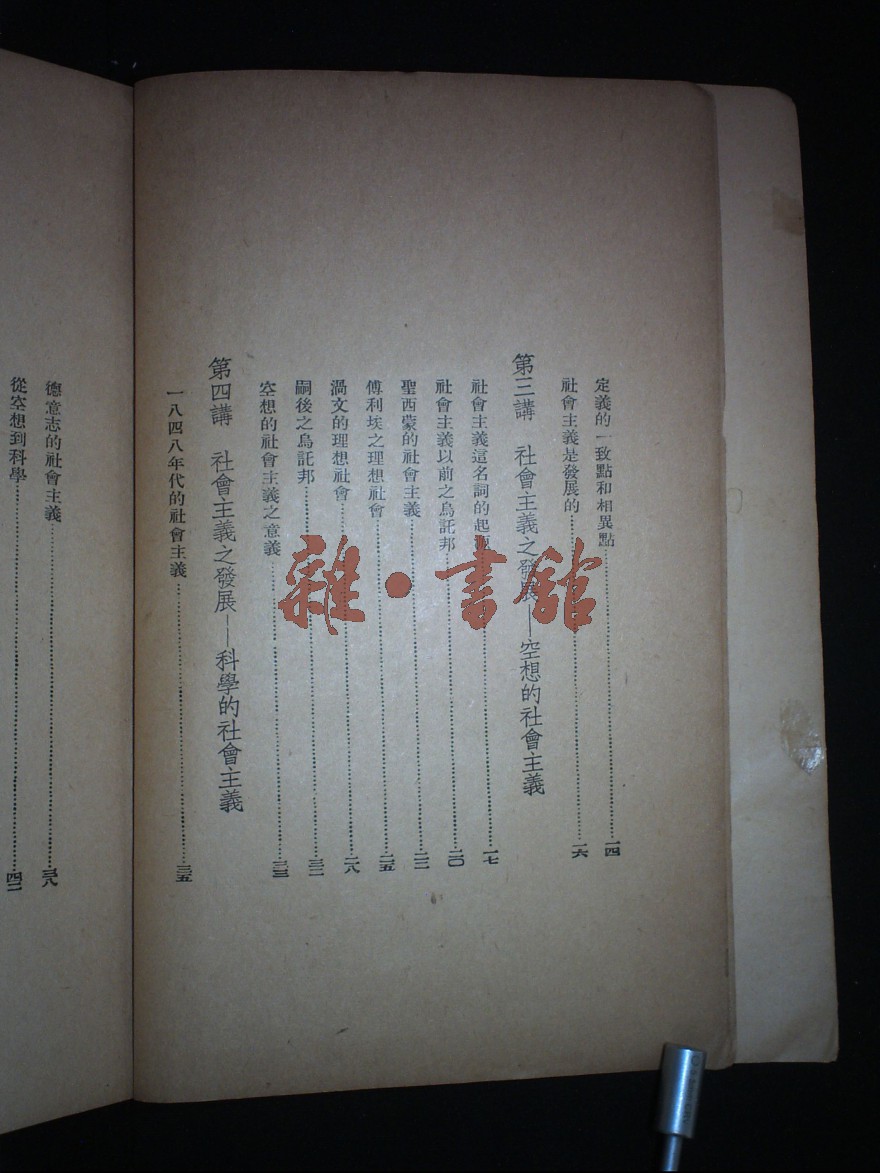 定義的一致點和相異點……一四
社會主義是發展的……一六
第三講 社會主義之發展——空想的社會主義
社會主義這名詞的起……一七
社會主義以前之烏託邦……二〇
聖西蒙的社會主義……二二
傅利埃之理想社會……二五
渦文的理想社會……二八
嗣後之烏託邦……三二
空想的社會主義之意義……三三
第四講 社會主義之發展——科學的社會主義
一八四八年代的社會主義……三五
德意志的社會主義……三八
從空想到科學……四二
雜·書館